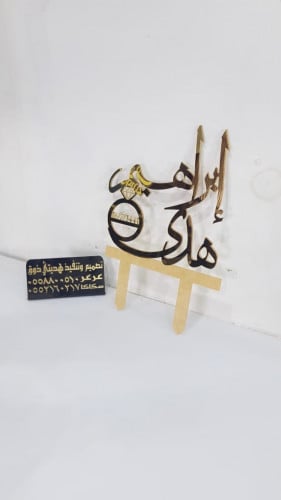 إبراهيم
هدى
تصميم وتنفيذ هديتي ذوق
عرعر ٠٥٥٨٨٠٠٥١٠
سكاكا ٠٥٥٢١٦٠٢١٧